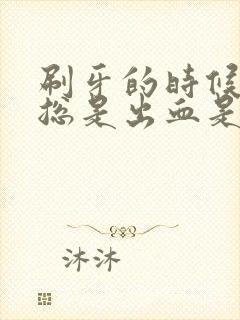 刷牙的时候
总是出血是
沐沐